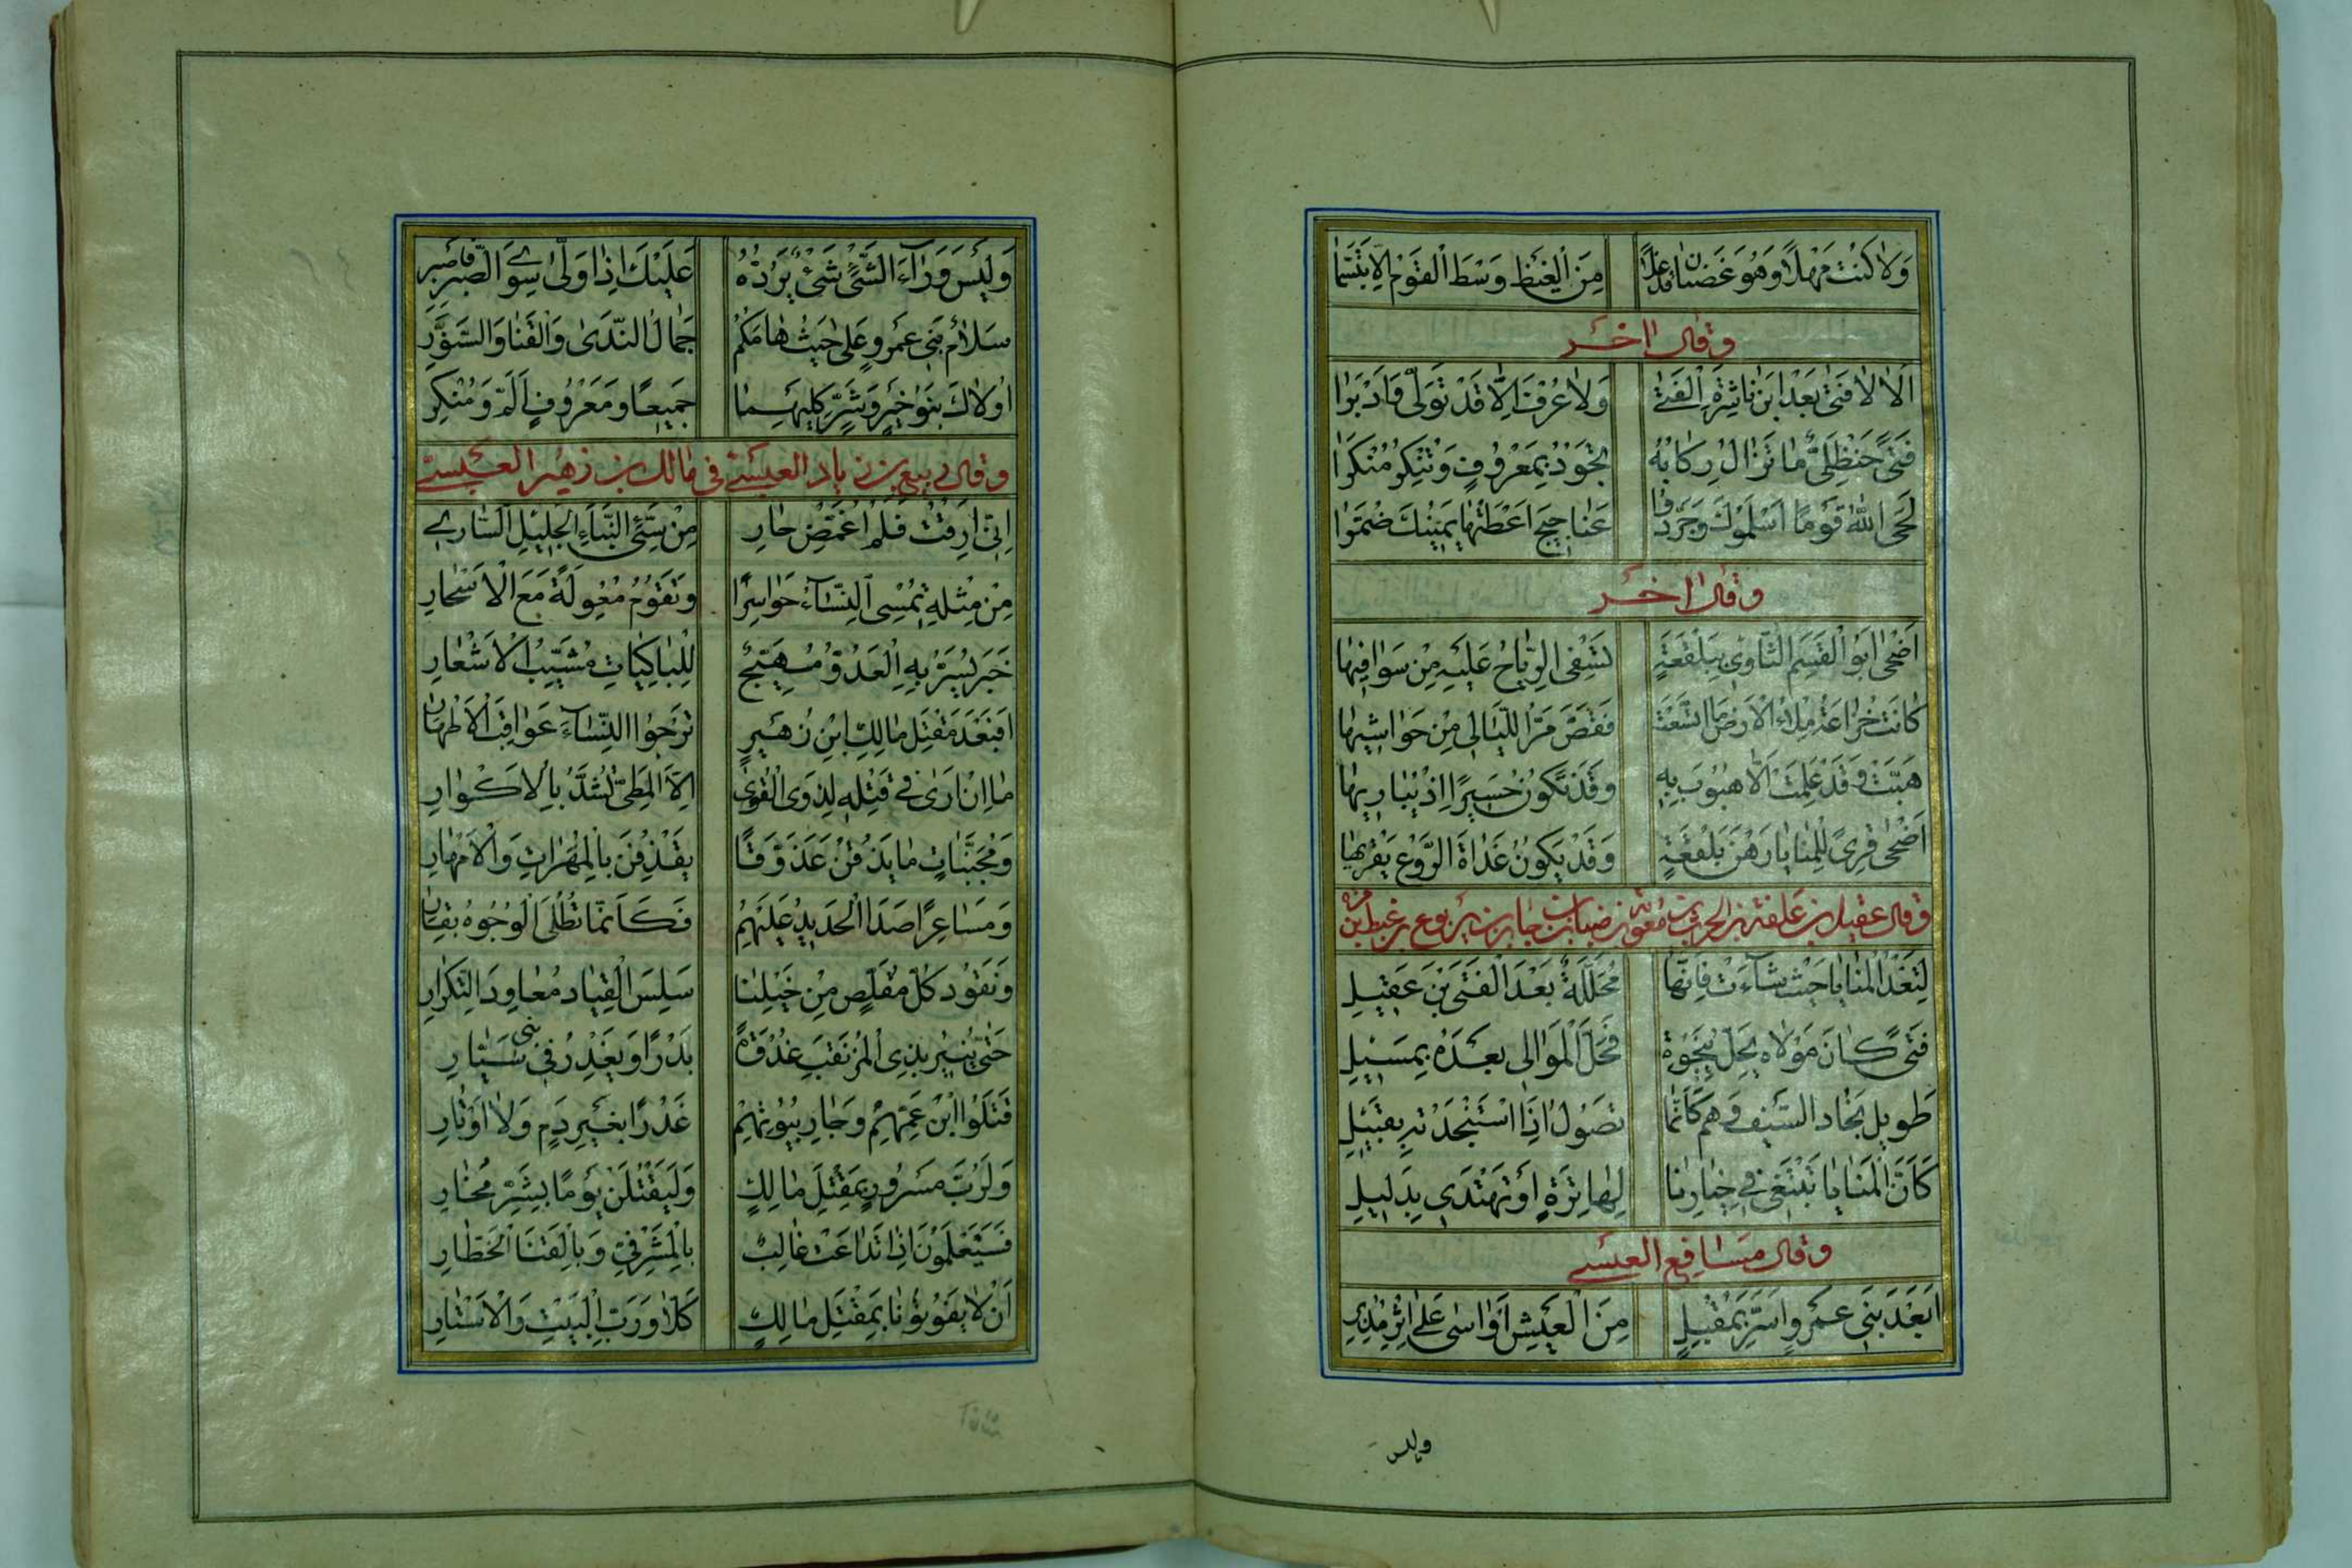 وَلَا كُنْتَ مَهْلًا وَهُوَ غَضْبَان قَدْ غَلَا مِنَ الْغَيْظِ وَسْطَ الْقَوْمِ إِلَّا تَبَسَّمَا
وقال اخر
اَلَا لَا فَتَى بَعْدَ ابْنِ نَاشِرَةِ الْفَتَى وَلَا عُرْفَ اِلَّا قَدْ تَوَلَّى وَاَدْبَرَا
فَتًى حَنْظَلِيٌّ مَا تَزَالُ رِكَابُهُ تَجُوْدُ بِمَعْرُوْفٍ وَتُنْكِرُ مُنْكَرَا
لَحَى اللّٰهُ قَوْمًا اَسْلَمُوْكَ وَجَرَّدُوا عَنَاجِيجَ اَعْطَتْهَا يَمِيْنُكَ ضُمَّرَا
وقال اخر
اَضْحٰى اَبُو الْقٰسِمِ الثَّاوِي بِبَلْقَعَةٍ تَسْفِى الرِّيَاحُ عَلَيْهِ مِنْ سَوَافِيْهَا
كَانَتْ خُزَاعَةُ مِلْاَ الْاَرْضِ مَا اتَّسَعَتْ فَقَصَّ مَرُّ اللَّيَالِى مِنْ حَوَاشِيْهَا
هَبَّتْ وَقَدْ عَلِمَتْ اَلَّا هُبُوْبَ بِهِ وَقَدْ تَكُوْنُ حَسِيْرًا اِذْ يُبَارِيْهَا
اَضْحٰى قِرًى لِلْمَنَايَا رَهْنَ بَلْقَعَةٍ وَقَدْ يَكُوْنُ غَدَاةَ الرَّوْعِ يَقْرِيْهَا
وقال عقيل بن علفة بن الحرث بن معوية بن ضباب بن جابر بن يربوع بن غيظ بن مرة
لِتَغْدُ الْمَنَايَا حَيْثُ شَاءَتْ فَاِنَّهَا مُحَلَّلَةٌ بَعْدَ الْفَتَى بْنِ عَقِيْلِ
فَتًى كَانَ مَوْلَاهُ يَحِلُّ بِنَجْوَةٍ فَحَلَّ الْمَوَالِى بَعْدَهُ بِمَسِيْلِ
طَوِيْلُ نِجَادِ السَّيْفِ وَهْمٌ كَاَنَّمَا تَصُوْلُ اِذَا اسْتَنْجَدْتَهُ بِقَبِيْلِ
كَاَنَّ الْمَنَايَا تَبْتَغِى فِى خِيَارِنَا لَهَا تِرَةً اَوْ تَهْتَدِي بِدَلِيْلِ
وقال مسافع العبسى
اَبَعْدَ بَنِى عَمْرٍو اُسَرُّ بِمُقْبِلٍ مِنَ الْعَيْشِ اَوْ اٰسَى عَلَى اِثْرِ مُدْبِرِ
وليس
وَلَيْسَ وَرَاءَ الشَّيْءِ شَيْءٌ يَرُدُّهُ عَلَيْكَ اِذَا وَلَّى سِوَى الصَّبْرِ فَاصْبِرِ
سَلَامُ بَنِى عَمْرٍو عَلَى حَيْثُ هَامَكُمْ جَمَالُ النَّدَى وَالْقَنَا وَالسَّنَوَّرِ
اُولَاكَ بَنُوْا خَيْرٍ وَشَرٍّ كِلَيْهِمَا جَمِيْعًا وَمَعْرُوْفٍ اَلَمَّ وَمُنْكَرِ
وقال ربيع بن زياد العبسى فى مالك بن زهير العبسى
اِنِّى اَرِقْتُ فَلَمْ اُغَمِّضْ حَارِ مِنْ سَيِّئِ النَّبَاءِ الْجَلِيْلِ السَّارِى
مِنْ مِثْلِهِ تُمْسِى النِّسَاءُ حَوَاسِرًا وَتَقُوْمُ مُعْوِلَةً مَعَ الْاَسْحَارِ
خَبَرٌ يُسَرُّ بِهِ الْعَدُوُّ مُهَيِّجٌ لِلْبَاكِيَاتِ مُشَيِّبُ الْاَشْعَارِ
اَفَبَعْدَ مَقْتَلِ مَالِكِ ابْنِ زُهَيْرٍ تَرْجُوْا النِّسَاءُ عَوَاقِبَ الْاَطْهَارِ
مَا اِنْ اَرَى فِى قَتْلِهِ لِذَوِى الْقُوَى اِلَّا الْمَطِيَّ تُشَدُّ بِالْاَكْوَارِ
وَمُجَنَّبَاتٍ مَا يَذُقْنَ عَذَوَّفًا يَقْذِفْنَ بِالْمُهَرَاتِ وَالْاَمْهَارِ
وَمَسَاعِرًا صَدَاُ الْحَدِيْدِ عَلَيْهِمُ فَكَاَنَّمَا تُطْلَى الْوُجُوْهُ بِقَارِ
وَنَقُوْدُ كُلَّ مُقَلَّصٍ مِنْ خَيْلِنَا سَلِسَ الْقِيَادِ مُعَاوِدَ التَّكْرَارِ
حَتَّى بِذِى الْمُرَنْقَبِ غُدْوَةً بَدْرًا وَيَغْدِرُ فِى بنى سَيَّارِ
قَتَلُوْا ابْنَ عَمِّهِمْ وَجَارَ بُيُوْتِهِمْ غَدْرًا بِغَيْرِ دَمٍ وَلَا اَوْتَارِ
وَلَرُبَّ مَسْرُوْرٍ بِمَقْتَلِ مَالِكٍ وَلَيُقْتَلَنْ يَوْمًا بِشَرِّ
فَسَيَعْلَمُوْنَ اِذَا تَدَاعَتْ غَالِبٌ بِالْمَشْرَفِيِّ وَبِالْقَنَا الْخَطَّارِ
اَنْ لَا يَفُوْتُوْنَا بِمَقْتَلِ مَالِكٍ كَلَّا وَرَبِّ الْبَيْتِ وَالْاَسْتَارِ